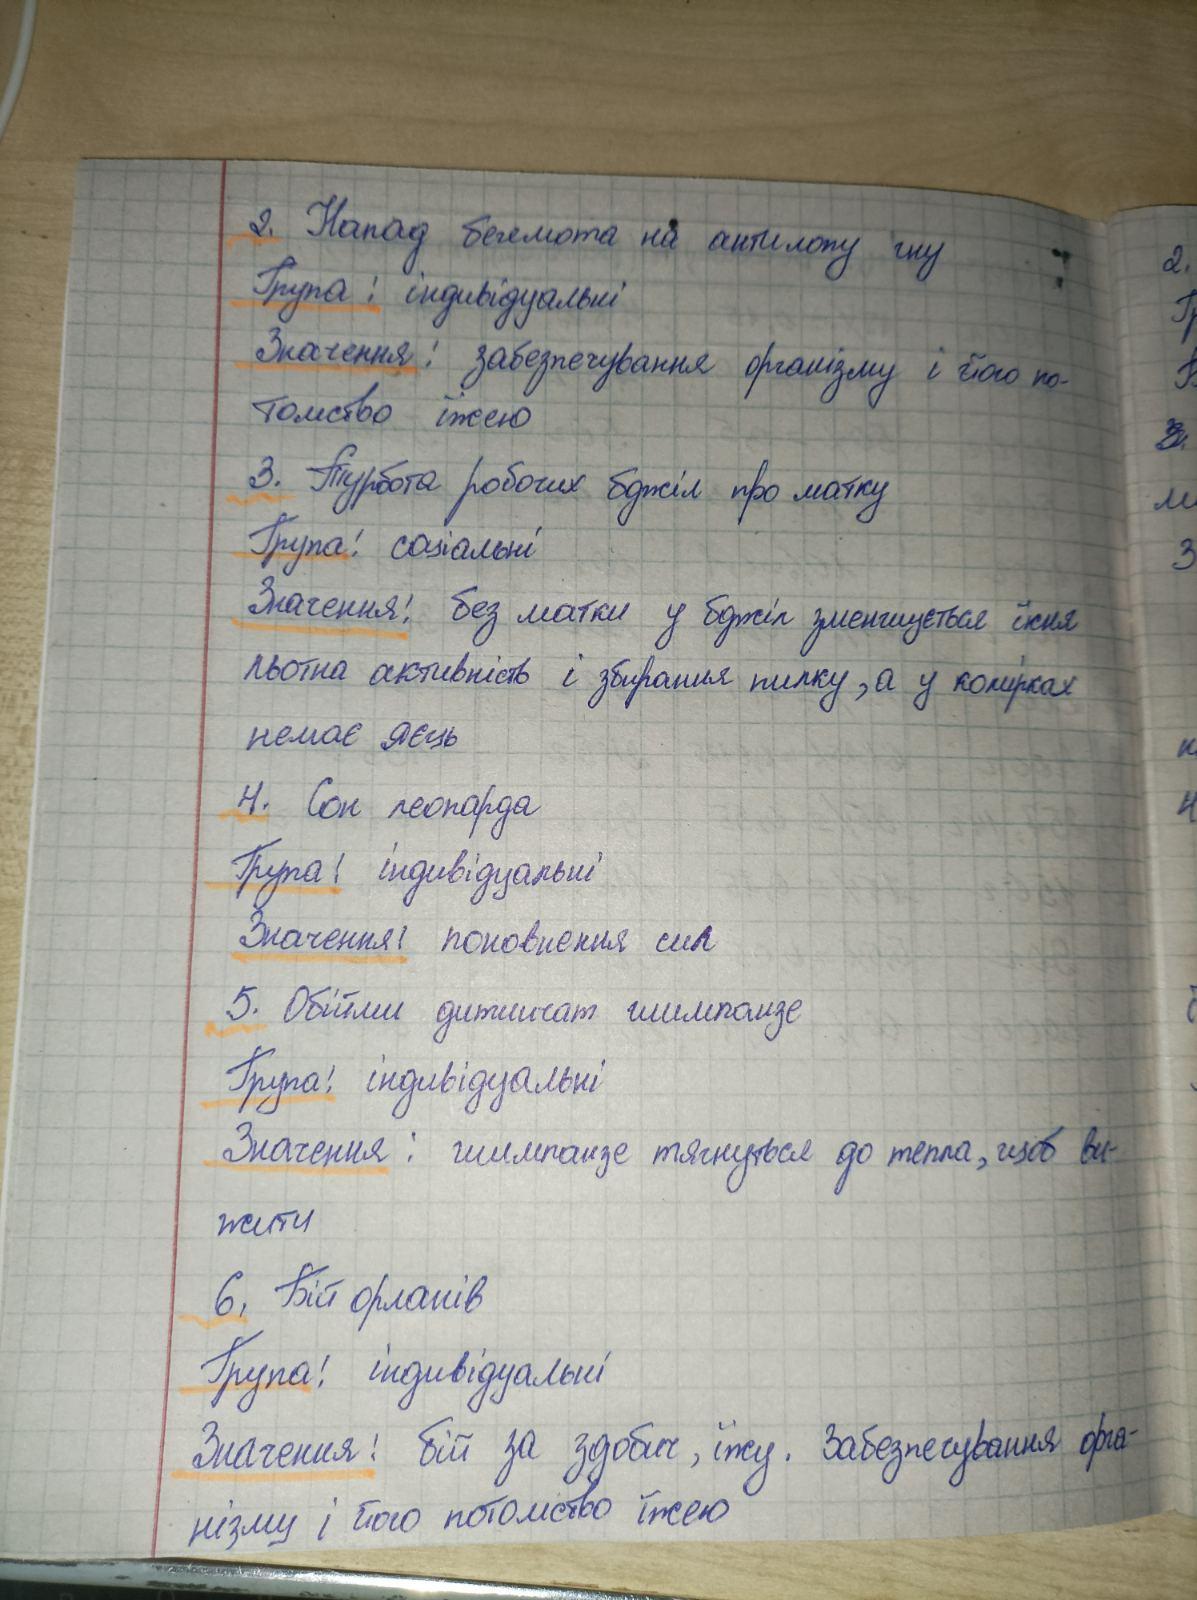 2. Напад бегемота на антилопу гну
Група: індивідуальні
Значення: забезпечування організму і його по-
томство їжею
3. Турбота робочих бджіл про матку
Група: соціальні
Значення: без матки у бджіл зменшується їхня
льотна активність і збирання пилку, а у комірках
немає яєць
4. Сон леопарда
Група: індивідуальні
Значення: поповнення сил
5. Обійми дитинчат шимпанзе
Група: індивідуальні
Значення: шимпанзе тягнуться до тепла, щоб ви-
жити
6. Бій орланів
Група: індивідуальні
Значення: бій за здобич, їжу. Забезпечування орга-
нізму і його потомство їжею
2.
3